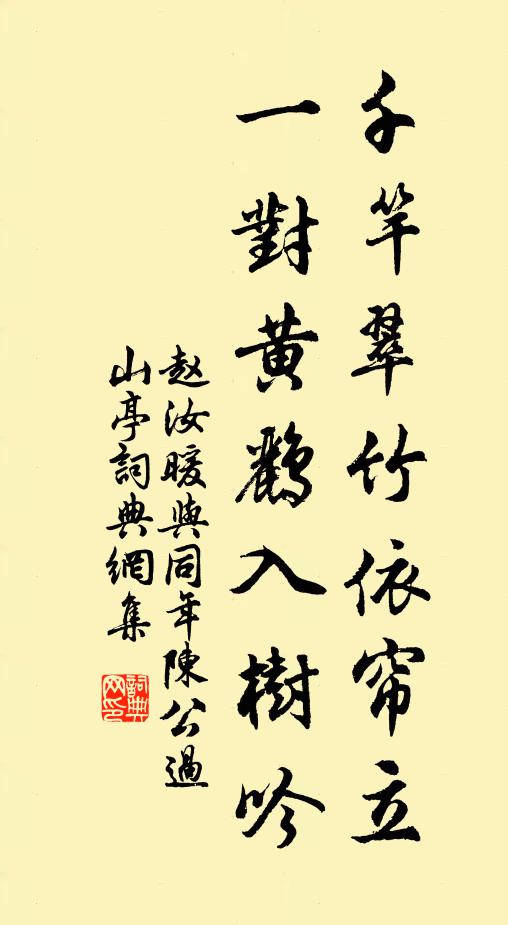 千竿翠竹依帘立
一對黃鸝入樹吟
赵汝暖與同年陳公過
山亭詞典網集
詞典
网印